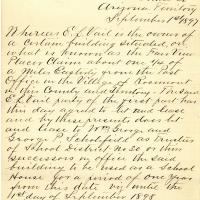 Arizona Territory
September 1st 1897
Whereas E. F. Vail is the owner of
a certain building situated on
what is known as the
Placer Claim about one ½ of
a Mile Easterly from the Post
Office in the Village of Rosemont
in this County and Territory.
E. F. Vail party of the first part has
this day agreed to let and lease
and by these presents does let
and lease to Wm George and
George Scholefield as Trustees
of School District No 20 or their
successors in office the said
building to be used as a School
House for a period of one year
from this date viz until the
1st day of September 1898